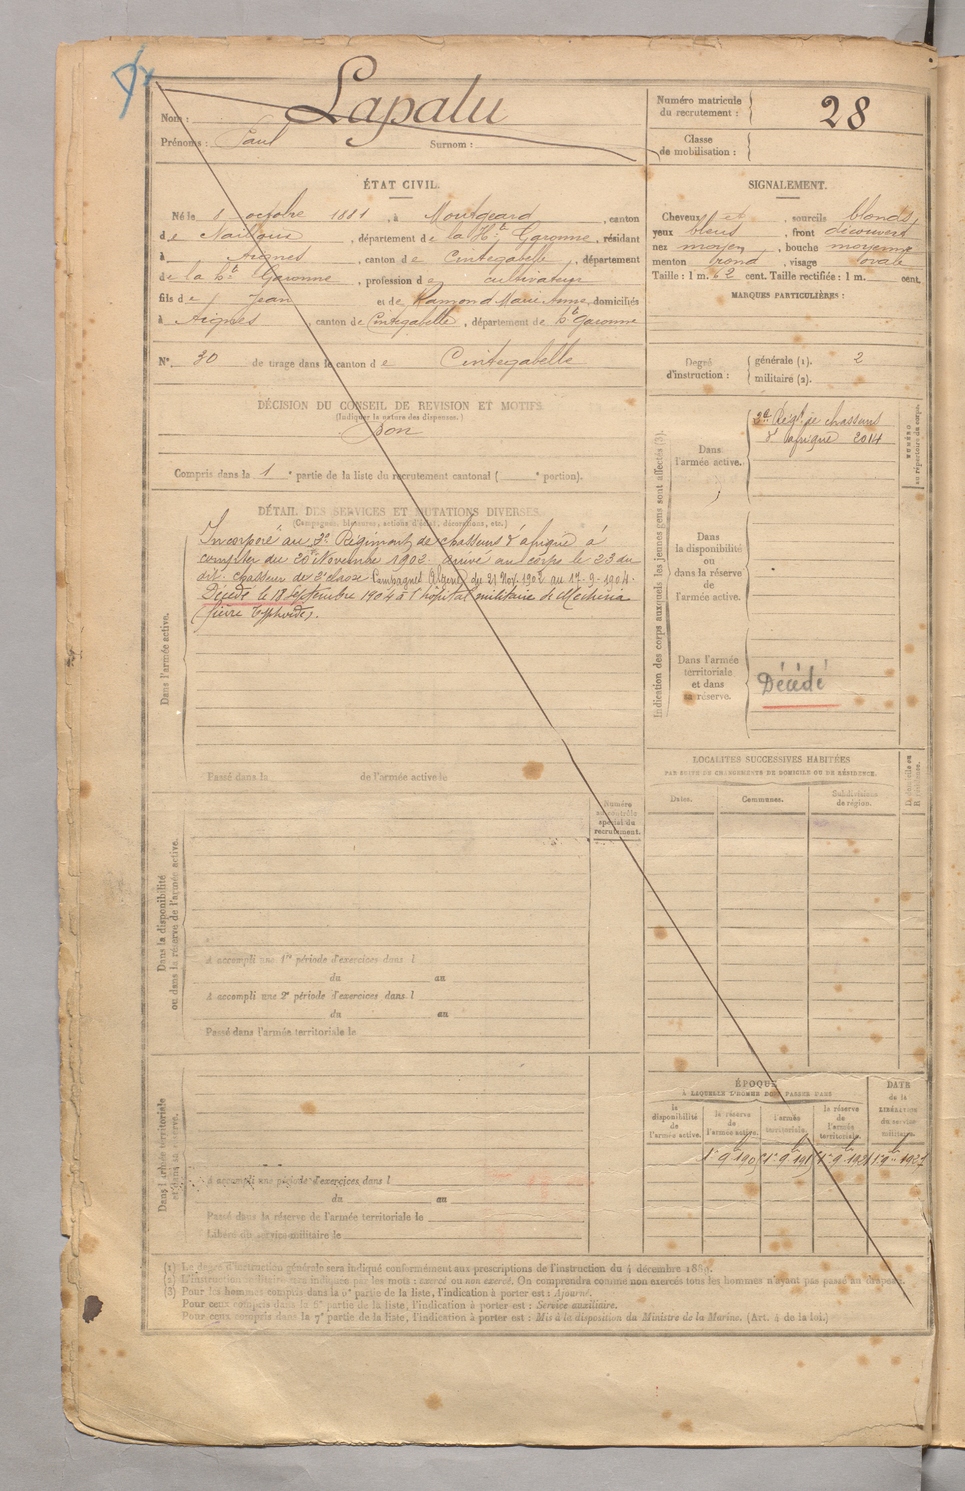 Nom : Lapalu
Prénoms : Paul Surnom :
Numéro matricule du recrutement : 28
Classe de mobilisation :
ÉTAT CIVIL.
Né le 8 octobre 1881, à Montgeard, canton
de Nailloux, département de la Hte Garonne, résidant
à Aignes, canton de Cintegabelle, département
de la hte Garonne, profession de cultivateur
fils de Jean et de Ramond Marie Anne, domiciliés
à Aignes, canton de Cintegabelle, département de hte Garonne
N° 30 de tirage dans le canton de Cintegabelle
DÉCISION DU CONSEIL DE REVISION ET MOTIFS.
(Indiquer la nature des dispenses.)
Bon
Compris dans la 1e partie de la liste du recrutement cantonal ( e portion).
SIGNALEMENT.
Cheveux et , sourcils blonds,
yeux bleus , front découvert
nez moyen , bouche moyenne
menton rond , visage ovale
Taille : 1 m. 62 cent. Taille rectifiée : 1 m. cent.
MARQUES PARTICULIÈRES :
Degré d'instruction : générale (1). 2
militaire (2).
DÉTAIL DES SERVICES ET MUTATIONS DIVERSES.
(Campagnes, blessures, actions d'éclat, décorations, etc.)
Dans l'armée active.
Incorporé au 3e Régiment de chasseurs d'afrique à
compter du 20 Novembre 1902. arrivé au corps le 23 du
dit. chasseur de 2e classe Campagnes Algérie du 21 Nov. 1902 au 17-9-1904.
Décédé le 18 Septembre 1904 à l'hôpital militaire de Mécheria
(fièvre typhoïde).
Passé dans la de l'armée active le
Indication des corps auxquels les jeunes gens sont affectés (3).
Dans l'armée active.
3e Régt de chasseurs
d'afrique 2014
NUMÉRO au répertoire du corps.
Dans la disponibilité ou dans la réserve de l'armée active.
Dans l'armée territoriale et dans sa réserve.
Décédé
LOCALITÉS SUCCESSIVES HABITÉES
PAR SUITE DE CHANGEMENTS DE DOMICILE OU DE RÉSIDENCE.
Dates. Communes. Subdivisions de région. D. domicile ou R. résidence.
Dans la disponibilité ou dans la réserve de l'armée active.
Numéro au contrôle spécial du recrutement.
A accompli une 1re période d'exercices dans l
du au
A accompli une 2e période d'exercices dans l
du au
Passé dans l'armée territoriale le
Dans l'armée territoriale et dans sa réserve.
A accompli une période d'exercices dans l
du au
Passé dans la réserve de l'armée territoriale le
Libéré du service militaire le
ÉPOQUE
À LAQUELLE L'HOMME DOIT PASSER DANS
DATE de la LIBÉRATION du service militaire.
la disponibilité de l'armée active. la réserve de l'armée active. l'armée territoriale. la réserve de l'armée territoriale.
(1) Le degré d'instruction générale sera indiqué conformément aux prescriptions de l'instruction du 4 décembre 1889.
(2) L'instruction militaire sera indiquée par les mots : exercé ou non exercé. On comprendra comme non exercés tous les hommes n'ayant pas passé au drapeau.
(3) Pour les hommes compris dans la 5e partie de la liste, l'indication à porter est : Ajourné.
Pour ceux compris dans la 6e partie de la liste, l'indication à porter est : Service auxiliaire.
Pour ceux compris dans la 7e partie de la liste, l'indication à porter est : Mis à la disposition du Ministre de la Marine. (Art. 4 de la loi.)